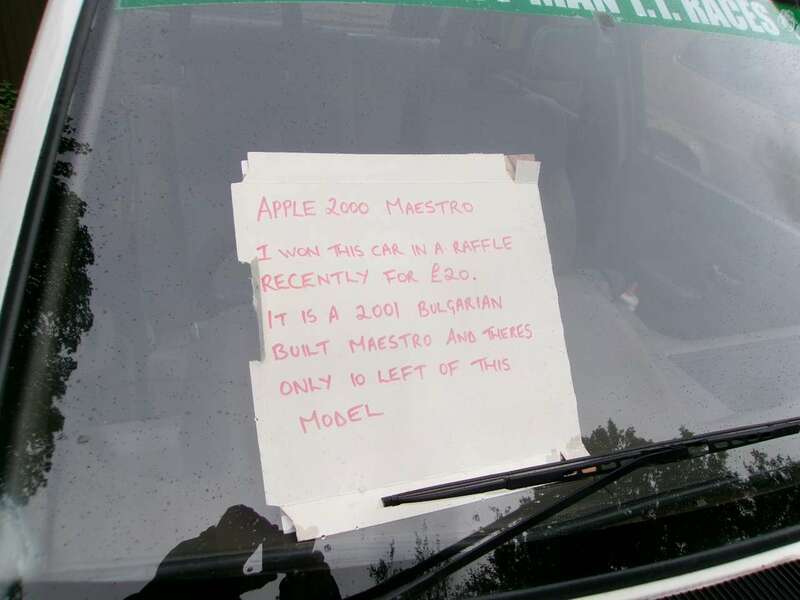 MAN T.T. RACES
APPLE 2000 MAESTRO
I WON THIS CAR IN A RAFFLE
RECENTLY FOR £20.
IT IS A 2001 BULGARIAN
BUILT MAESTRO AND THERES
ONLY 10 LEFT OF THIS
MODEL